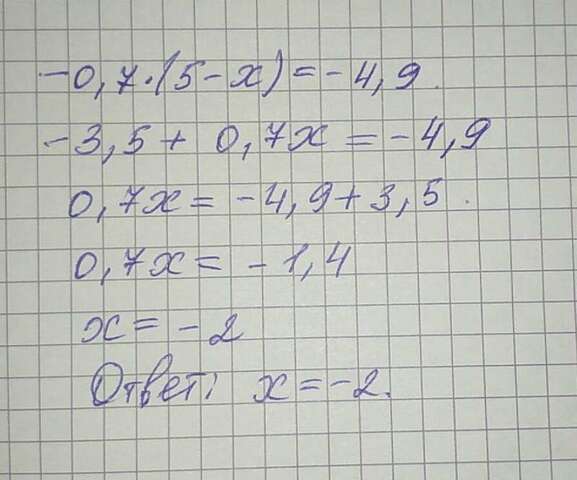 -0,7·(5-x)=-4,9.
-3,5+ 0,7x=-4,9
0,7x=-4,9+3,5.
0,7x=-1,4
x=-2
Ответ: x=-2.